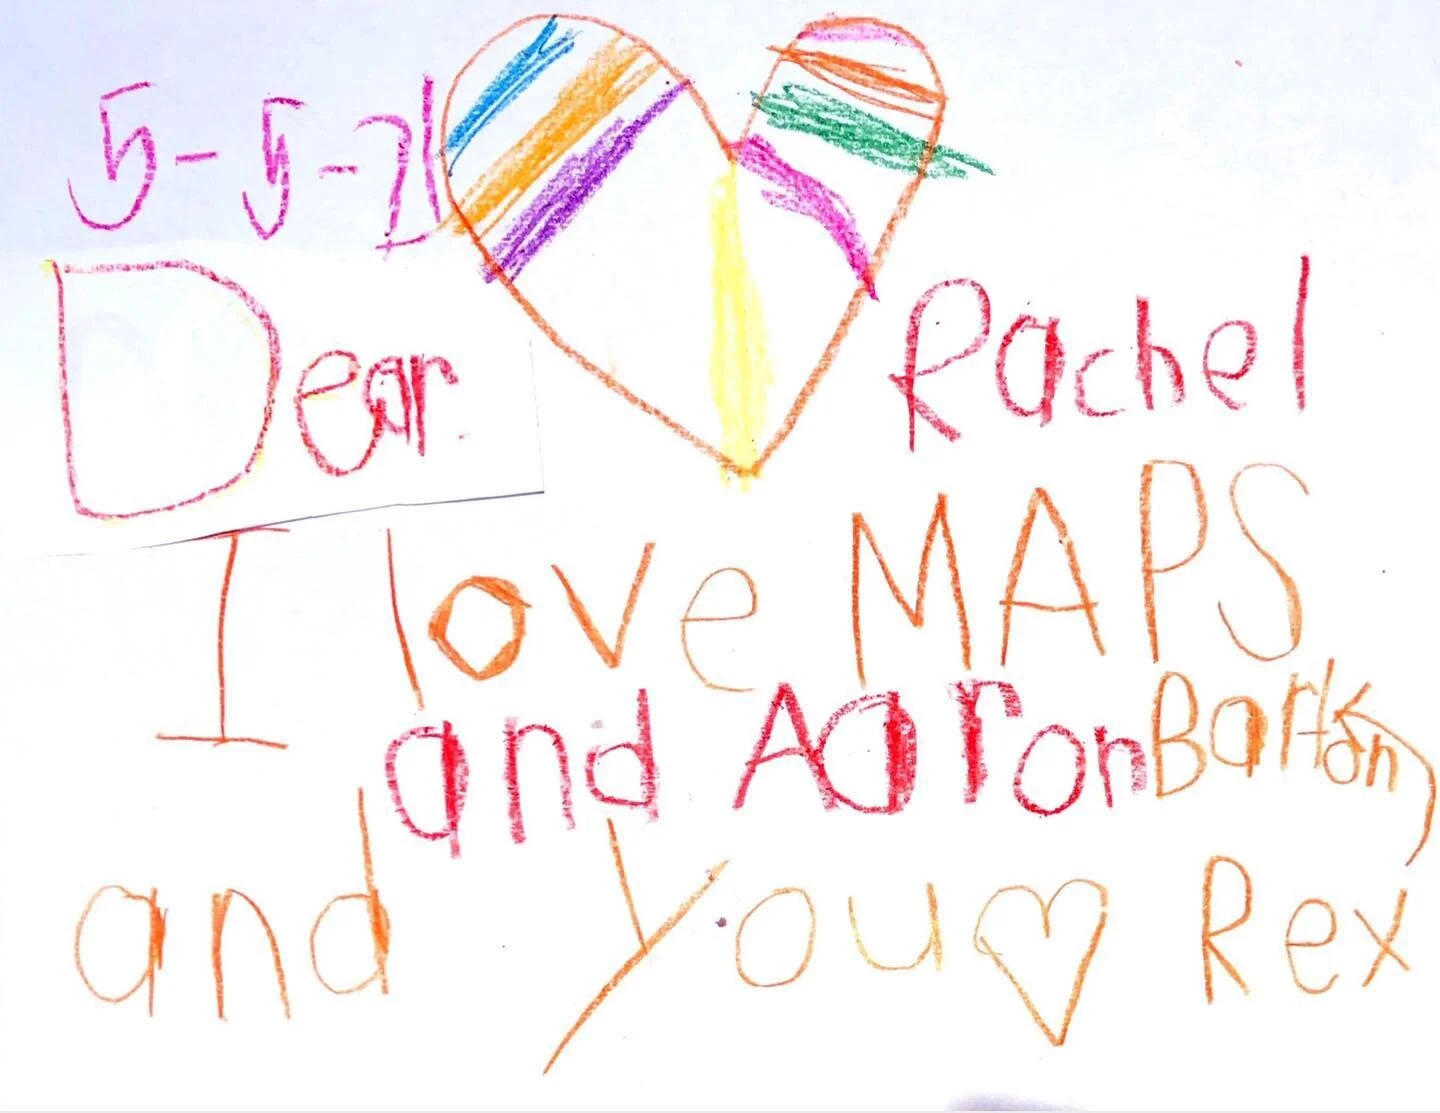 5-5-21
Dear Rachel
I love MAPS
and Aaron Barton
and you Rex